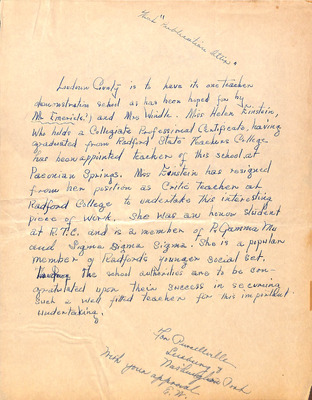 Loudoun County is to have its one teacher
demonstration school as has been hoped for by
Mr Emerick(?) and Mrs Windle. Miss Helen Einstein,
who holds a Collegiate Professional Certificate, having
graduated from Radford State Teachers College
has been appointed teacher of this school at
Paeonian Springs. Miss Einstein has resigned
from her position as Critic Teacher at
Radford College to undertake this interesting
piece of work. She was an honor student
at R.T.C. and is a member of Pi Gamma Mu
and Sigma Sigma Sigma. She is a popular
member of Radford's younger social set.
the school authorities are to be con-
gratulated upon their success in securing
such a well fitted teacher for this important
undertaking.
For Purcellville
Leesburg &
Washington
With your approval
E.W.